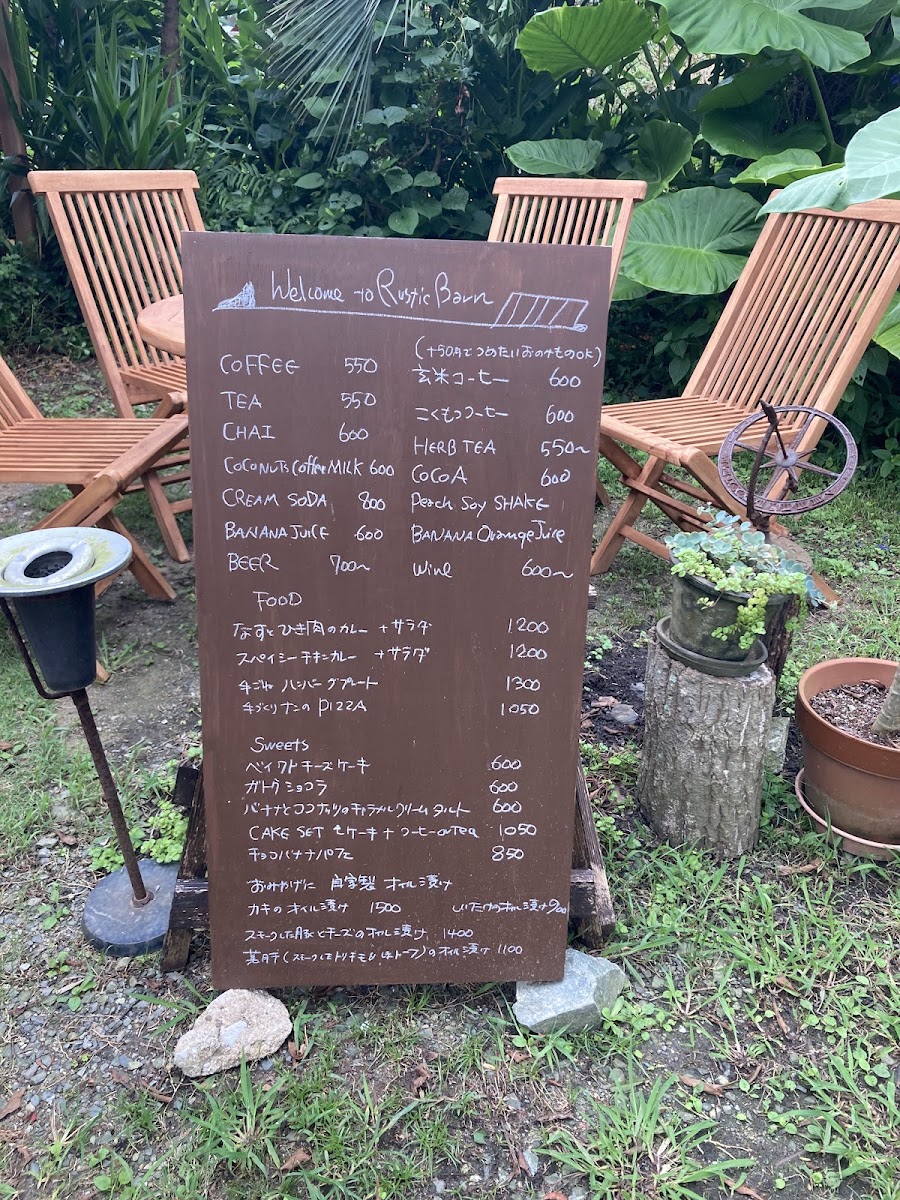 Welcome to Rustic Barn
(+50円でつめたいおのみものOK)
COFFEE 550
TEA 550
CHAI 600
COCONUTS COFFEE MILK 600
CREAM SODA 800
BANANA JUICE 600
BEER 700〜
玄米コーヒー 600
こくもつコーヒー 600
HERB TEA 550〜
COCOA 600
Peach Soy SHAKE
BANANA Orange Juice
Wine 600〜
FOOD
なすとひき肉のカレー +サラダ 1200
スペイシーチキンカレー +サラダ 1200
手ごね ハンバーグプレート 1300
手づくりナンのPIZZA 1050
Sweets
ベイクトチーズケーキ 600
ガトーショコラ 600
バナナとココナッツのキャラメルクリームタルト 600
CAKE SET ケーキ+コーヒーorTea 1050
チョコバナナパフェ 850
おみやげに 自家製 オイル漬け
カキのオイル漬け 1500 しいたけのオイル漬け 900
スモークした豚とチーズのオイル漬け 1400
(スモークしたトリモモ &)のオイル漬け 1100